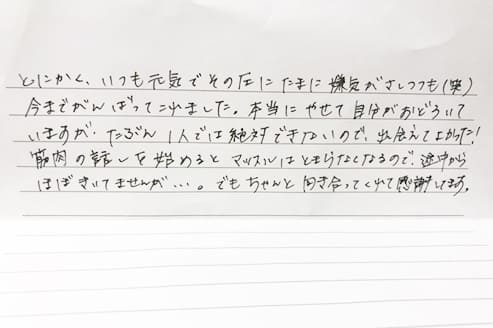 とにかく、いつも元気でその圧にたまに嫌気がさしつつも(笑)
今までがんばってこれました。本当にやせて自分がおどろいて
いますが、たぶん1人では絶対できないので、出会えてよかった!
筋肉の話しを始めるとマッスルはとまらなくなるので、途中から
ほぼきいてませんが…。でもちゃんと向き合ってくれて感謝してます。